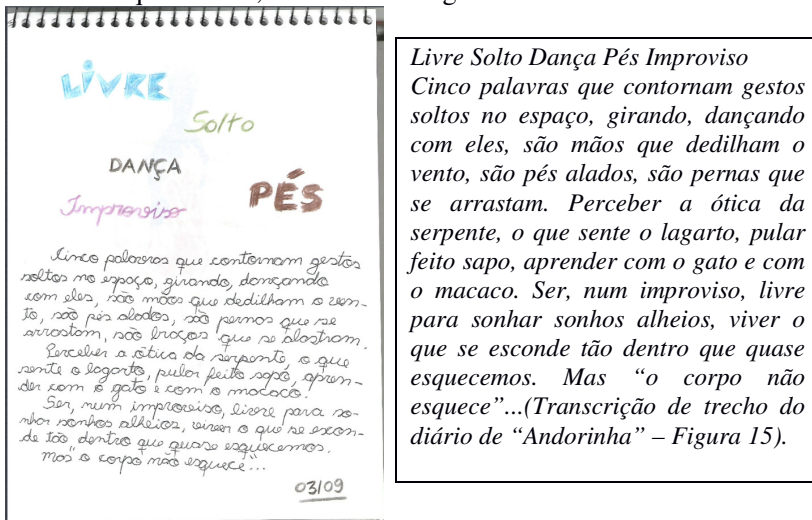 LiVRE
Solto
DANÇA
PÉS
Improviso
Cinco palavras que contornam gestos
soltos no espaço, girando, dançando
com eles, são mãos que dedilham o ven-
to, são pés alados, são pernas que se
arrastam, são braços que se alastram.
Perceber a ótica da serpente, o que
sente o lagarto, pular feito sapo, apren-
der com o gato e com o macaco.
Ser, num improviso, livre para so-
nhar sonhos alheios, viver o que se escon-
de tão dentro que quase esquecemos.
mas "o corpo não esquece"...
03/09
Livre Solto Dança Pés Improviso
Cinco palavras que contornam gestos
soltos no espaço, girando, dançando
com eles, são mãos que dedilham o
vento, são pés alados, são pernas que
se arrastam. Perceber a ótica da
serpente, o que sente o lagarto, pular
feito sapo, aprender com o gato e com
o macaco. Ser, num improviso, livre
para sonhar sonhos alheios, viver o
que se esconde tão dentro que quase
esquecemos. Mas “o corpo não
esquece”...(Transcrição de trecho do
diário de “Andorinha” – Figura 15).